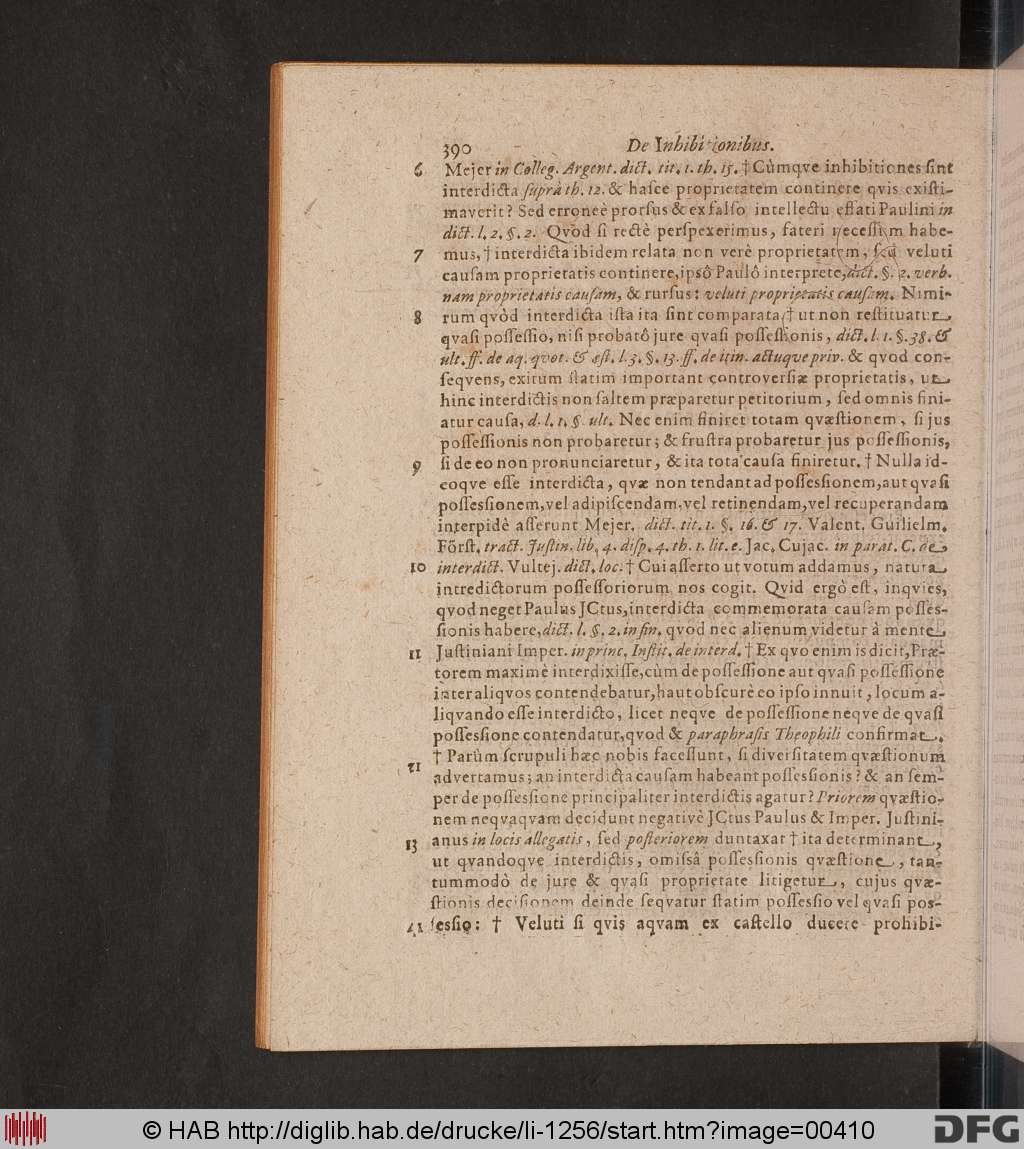 390 De Inhibitionibus.
6 Mejer in Colleg. Argent. dict. tit. 1. th. 15. † Cùmqve inhibitiones ſint
interdicta ſuprà th. 12. & haſce proprietatem continere qvis exiſti-
maverit? Sed erroneè prorſus & ex falſo intellectu effati Paulini in
dict. l. 2. §. 2. Qvòd ſi rectè perſpexerimus, fateri neceſſum habe-
7 mus, † interdicta ibidem relata non verè proprietatem, ſed veluti
cauſam proprietatis continere, ipsô Paulô interprete, dict. §. 2. verb.
nam proprietatis cauſam, & rurſus: veluti proprietatis cauſam. Nimi-
8 rum qvòd interdicta iſta ita ſint comparata, † ut non reſtituatur
qvaſi poſſeſſio, niſi probatô jure qvaſi poſſeſſionis, dict. l. 1. §. 38. &
ult. ff. de aq. qvot. & æſt. l. 3. §. 13. ff. de itin. actuque priv. & qvod con-
ſeqvens, exitum ſtatim important controverſiæ proprietatis, ut
hinc interdictis non ſaltem præparetur petitorium, ſed omnis fini-
atur cauſa, d. l. 1. §. ult. Nec enim finiret totam qvæſtionem, ſi jus
poſſeſſionis non probaretur; & fruſtra probaretur jus poſſeſſionis,
9 ſi de eo non pronunciaretur, & ita tota cauſa finiretur. † Nulla id-
coqve eſſe interdicta, qvæ non tendant ad poſſeſsionem, aut qvaſi
poſſeſsionem, vel adipiſcendam, vel retinendam, vel recuperandam
interpidè aſſerunt Mejer. dict. tit. 1. §. 16. & 17. Valent. Guilielm.
Förſt. tract. Juſtin. lib. 4. diſp. 4. th. 1. lit. e. Jac. Cujac. in parat. C. de
10 interdict. Vultej. dict. loc. † Cui aſſerto ut votum addamus, natura
intredictorum poſſeſſoriorum nos cogit. Qvid ergò eſt, inqvies,
qvod neget Paulus JCtus, interdicta commemorata cauſam poſſeſ-
ſionis habere, dict. l. §. 2. in fin. qvod nec alienum videtur à mente
11 Juſtiniani Imper. in princ. Inſtit. de interd. † Ex qvo enim is dicit, Præ-
torem maximè interdixiſſe, cùm de poſſeſſione aut qvaſi poſſeſſione
inter aliqvos contendebatur, haut obſcurè eo ipſo innuit, locum a-
liqvando eſſe interdicto, licet neqve de poſſeſſione neqve de qvaſi
poſſeſsione contendatur, qvod & paraphraſis Theophili confirmat.
21 † Parùm ſcrupuli hæc nobis faceſſunt, ſi diverſitatem qvæſtionum
advertamus; an interdicta cauſam habeant poſſeſsionis? & an ſem-
per de poſſeſsione principaliter interdictis agatur? Priorem qvæſtio-
nem neqvaqvam decidunt negativè JCtus Paulus & Imper. Juſtini-
13 anus in locis allegatis, ſed poſteriorem duntaxat † ita determinant,
ut qvandoqve interdictis, omiſsâ poſſeſsionis qvæſtione, tan-
tummodò de jure & qvaſi proprietate litigetur, cujus qvæ-
ſtionis deciſionem deinde ſeqvatur ſtatim poſſeſsio vel qvaſi poſ-
41 ſeſsio: † Veluti ſi qvis aqvam ex caſtello ducere prohibi-
© HAB http://diglib.hab.de/drucke/li-1256/start.htm?image=00410
DFG